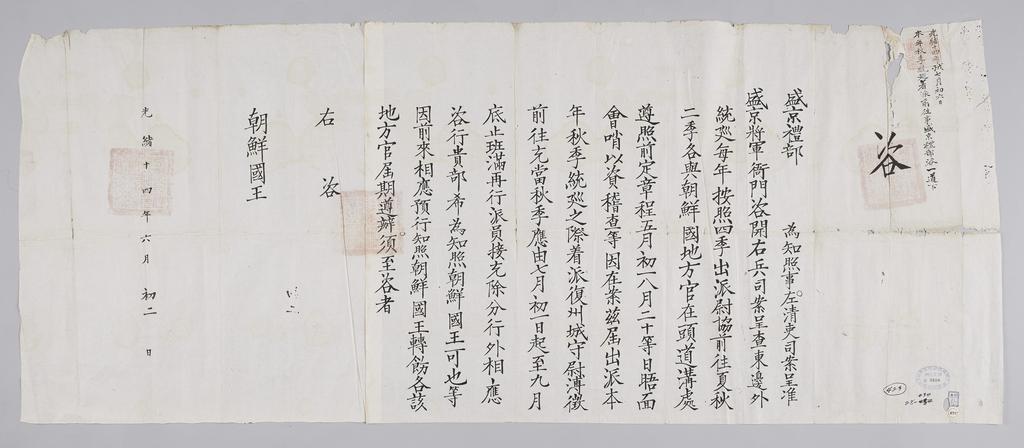 光緖十四年戊七月初六日
咨
盛京禮部 為知照事左淸吏司案呈准
盛京將軍衙門咨開右兵司案呈查東邊外
統廵每年按照四季出派尉協前往夏秋
二季各與朝鮮國地方官在頭道溝處
遵照前定章程五月初一八月二十等日晤面
會哨以資稽查等因在案茲屆出派本
年秋季統廵之際着派復州城守尉溥徵
前往充當秋季應由七月初一日起至九月
底止班滿再行派員接充除分行外相應
咨行貴部希為知照朝鮮國王可也等
因前來相應預行知照朝鮮國王轉飭各該
地方官屆期遵辦須至咨者
右咨
朝鮮國王
光緖十四年六月初二日